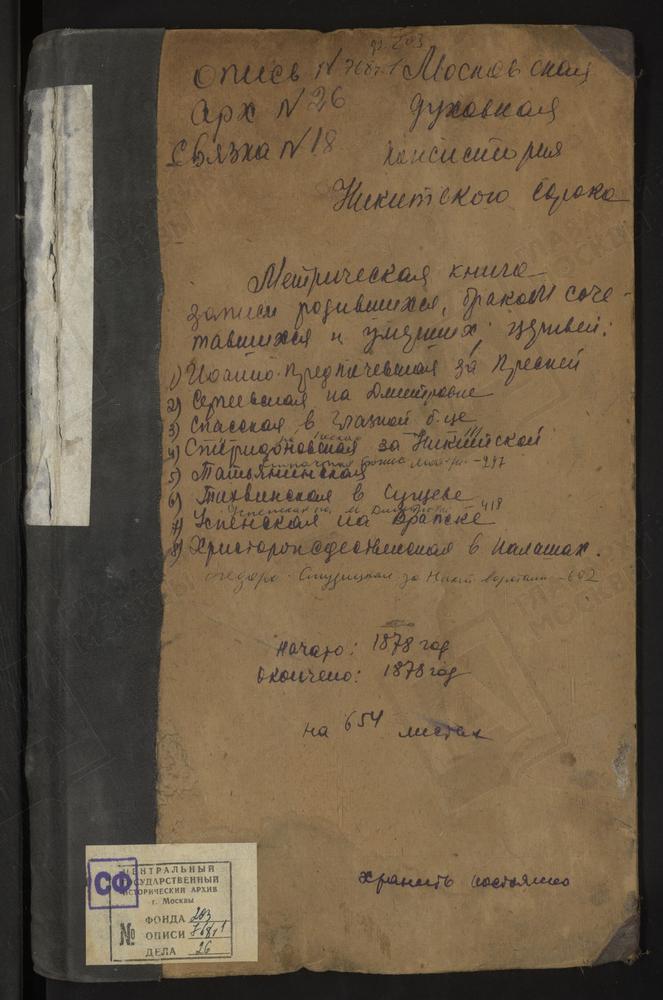 Опись N 768т.1 Московская
Арх N 26 духовная
Связка N 18 консистория
Никитского сорока
Метрическая книга
записи родившихся, браком соче-
тавшихся и умерших церквей:
1) Иоанно-Предтечевская за Пресней
2) Сергиевская на Дмитровке
3) Спасская в Глазной б-це
4) Спиридоновская за Никитской
5) Татьянинская 297
6) Тихвинская в Сущеве
Успенская на М. Дмитровке 418
7) Успенская на Вражке
8) Христорождественская в Палашах.
Феодоро-Студицкая за Никит воротами - 602
начато: 1878 год
окончено: 1878 год
на 654 листах
хранить постоянно
СФ
ЦЕНТРАЛЬНЫЙ
ГОСУДАРСТВЕННЫЙ
ИСТОРИЧЕСКИЙ АРХИВ
г. Москвы
ФОНДА 203
№ ОПИСИ 768т1
ДЕЛА 26